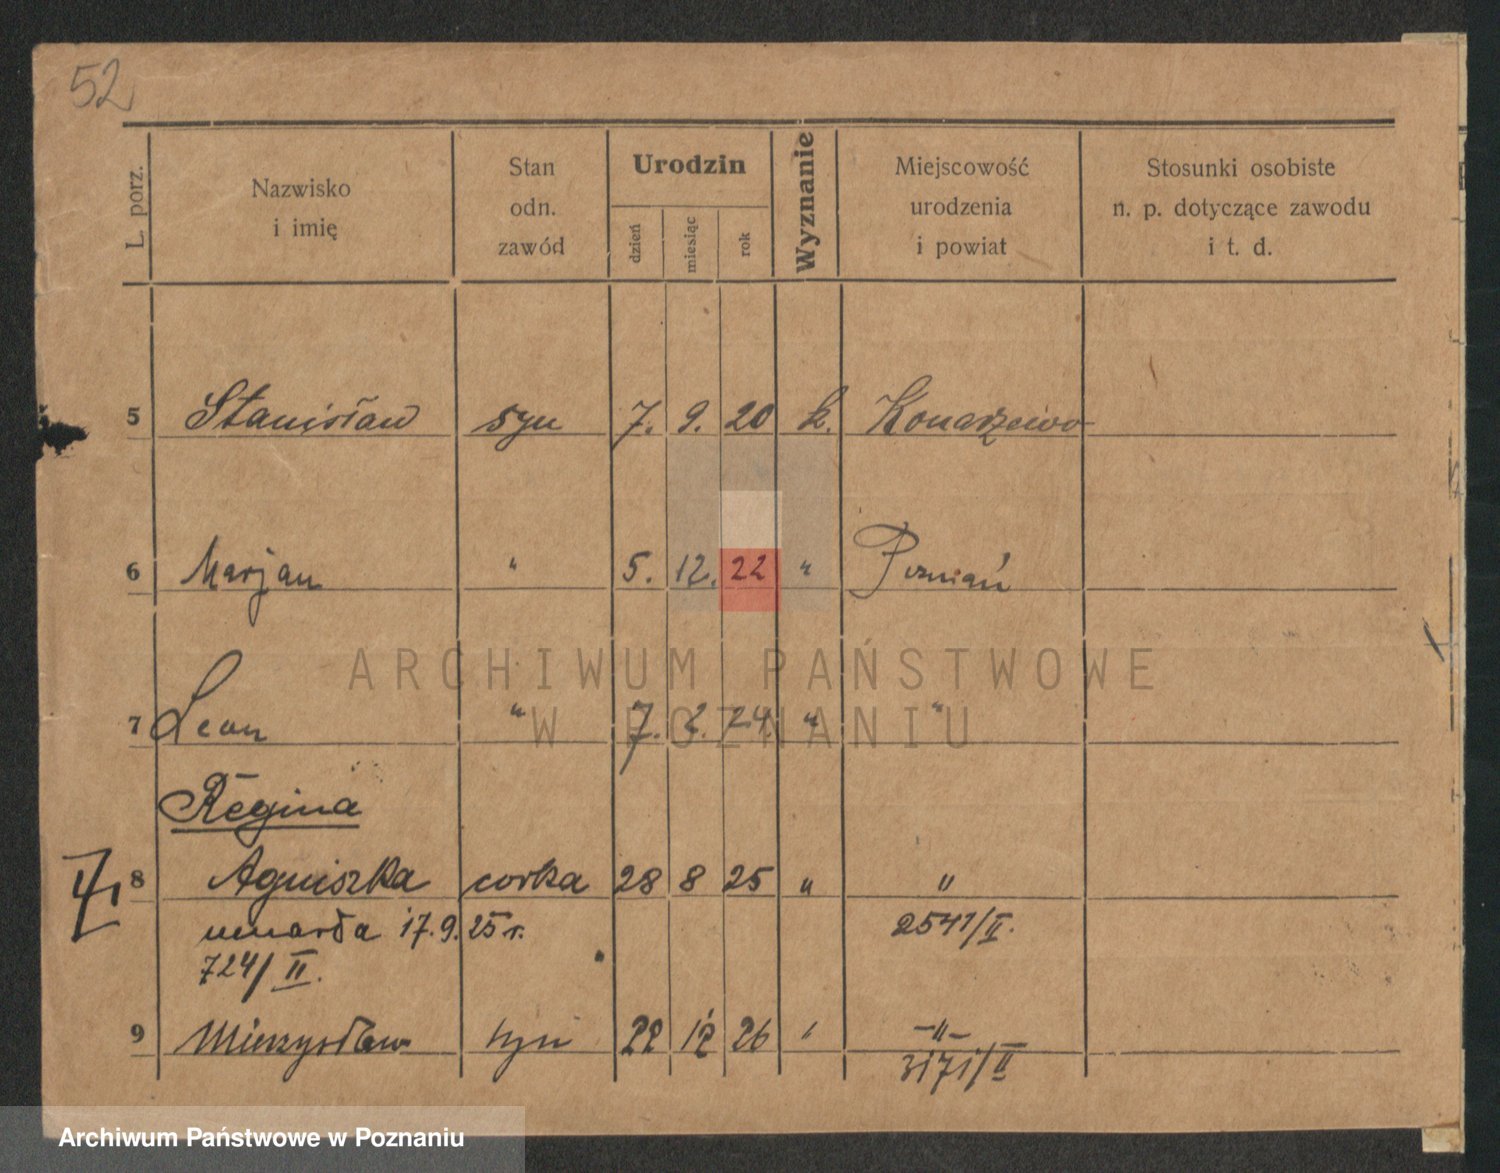 52
L. porz.
Nazwisko
i imię
Stan
odn.
zawód
Urodzin
dzień
miesiąc
rok
Wyznanie
Miejscowość
urodzenia
i powiat
Stosunki osobiste
n. p. dotyczące zawodu
i t. d.
5 Stanisław syn 7. 9. 20 k. Konarzewo
6 Marjan " 5. 12. 22 " Poznań
ARCHIWUM PAŃSTWOWE
7 Leon " 7. 2. 24. " "
W POZNANIU
Regina
8 Agnieszka corka 28 8 25 " "
umarła 17. 9. 25 r. 2541/II.
724/II.
9 Mieczysław syn 22 12 26 " -"-
3171/II
Archiwum Państwowe w Poznaniu